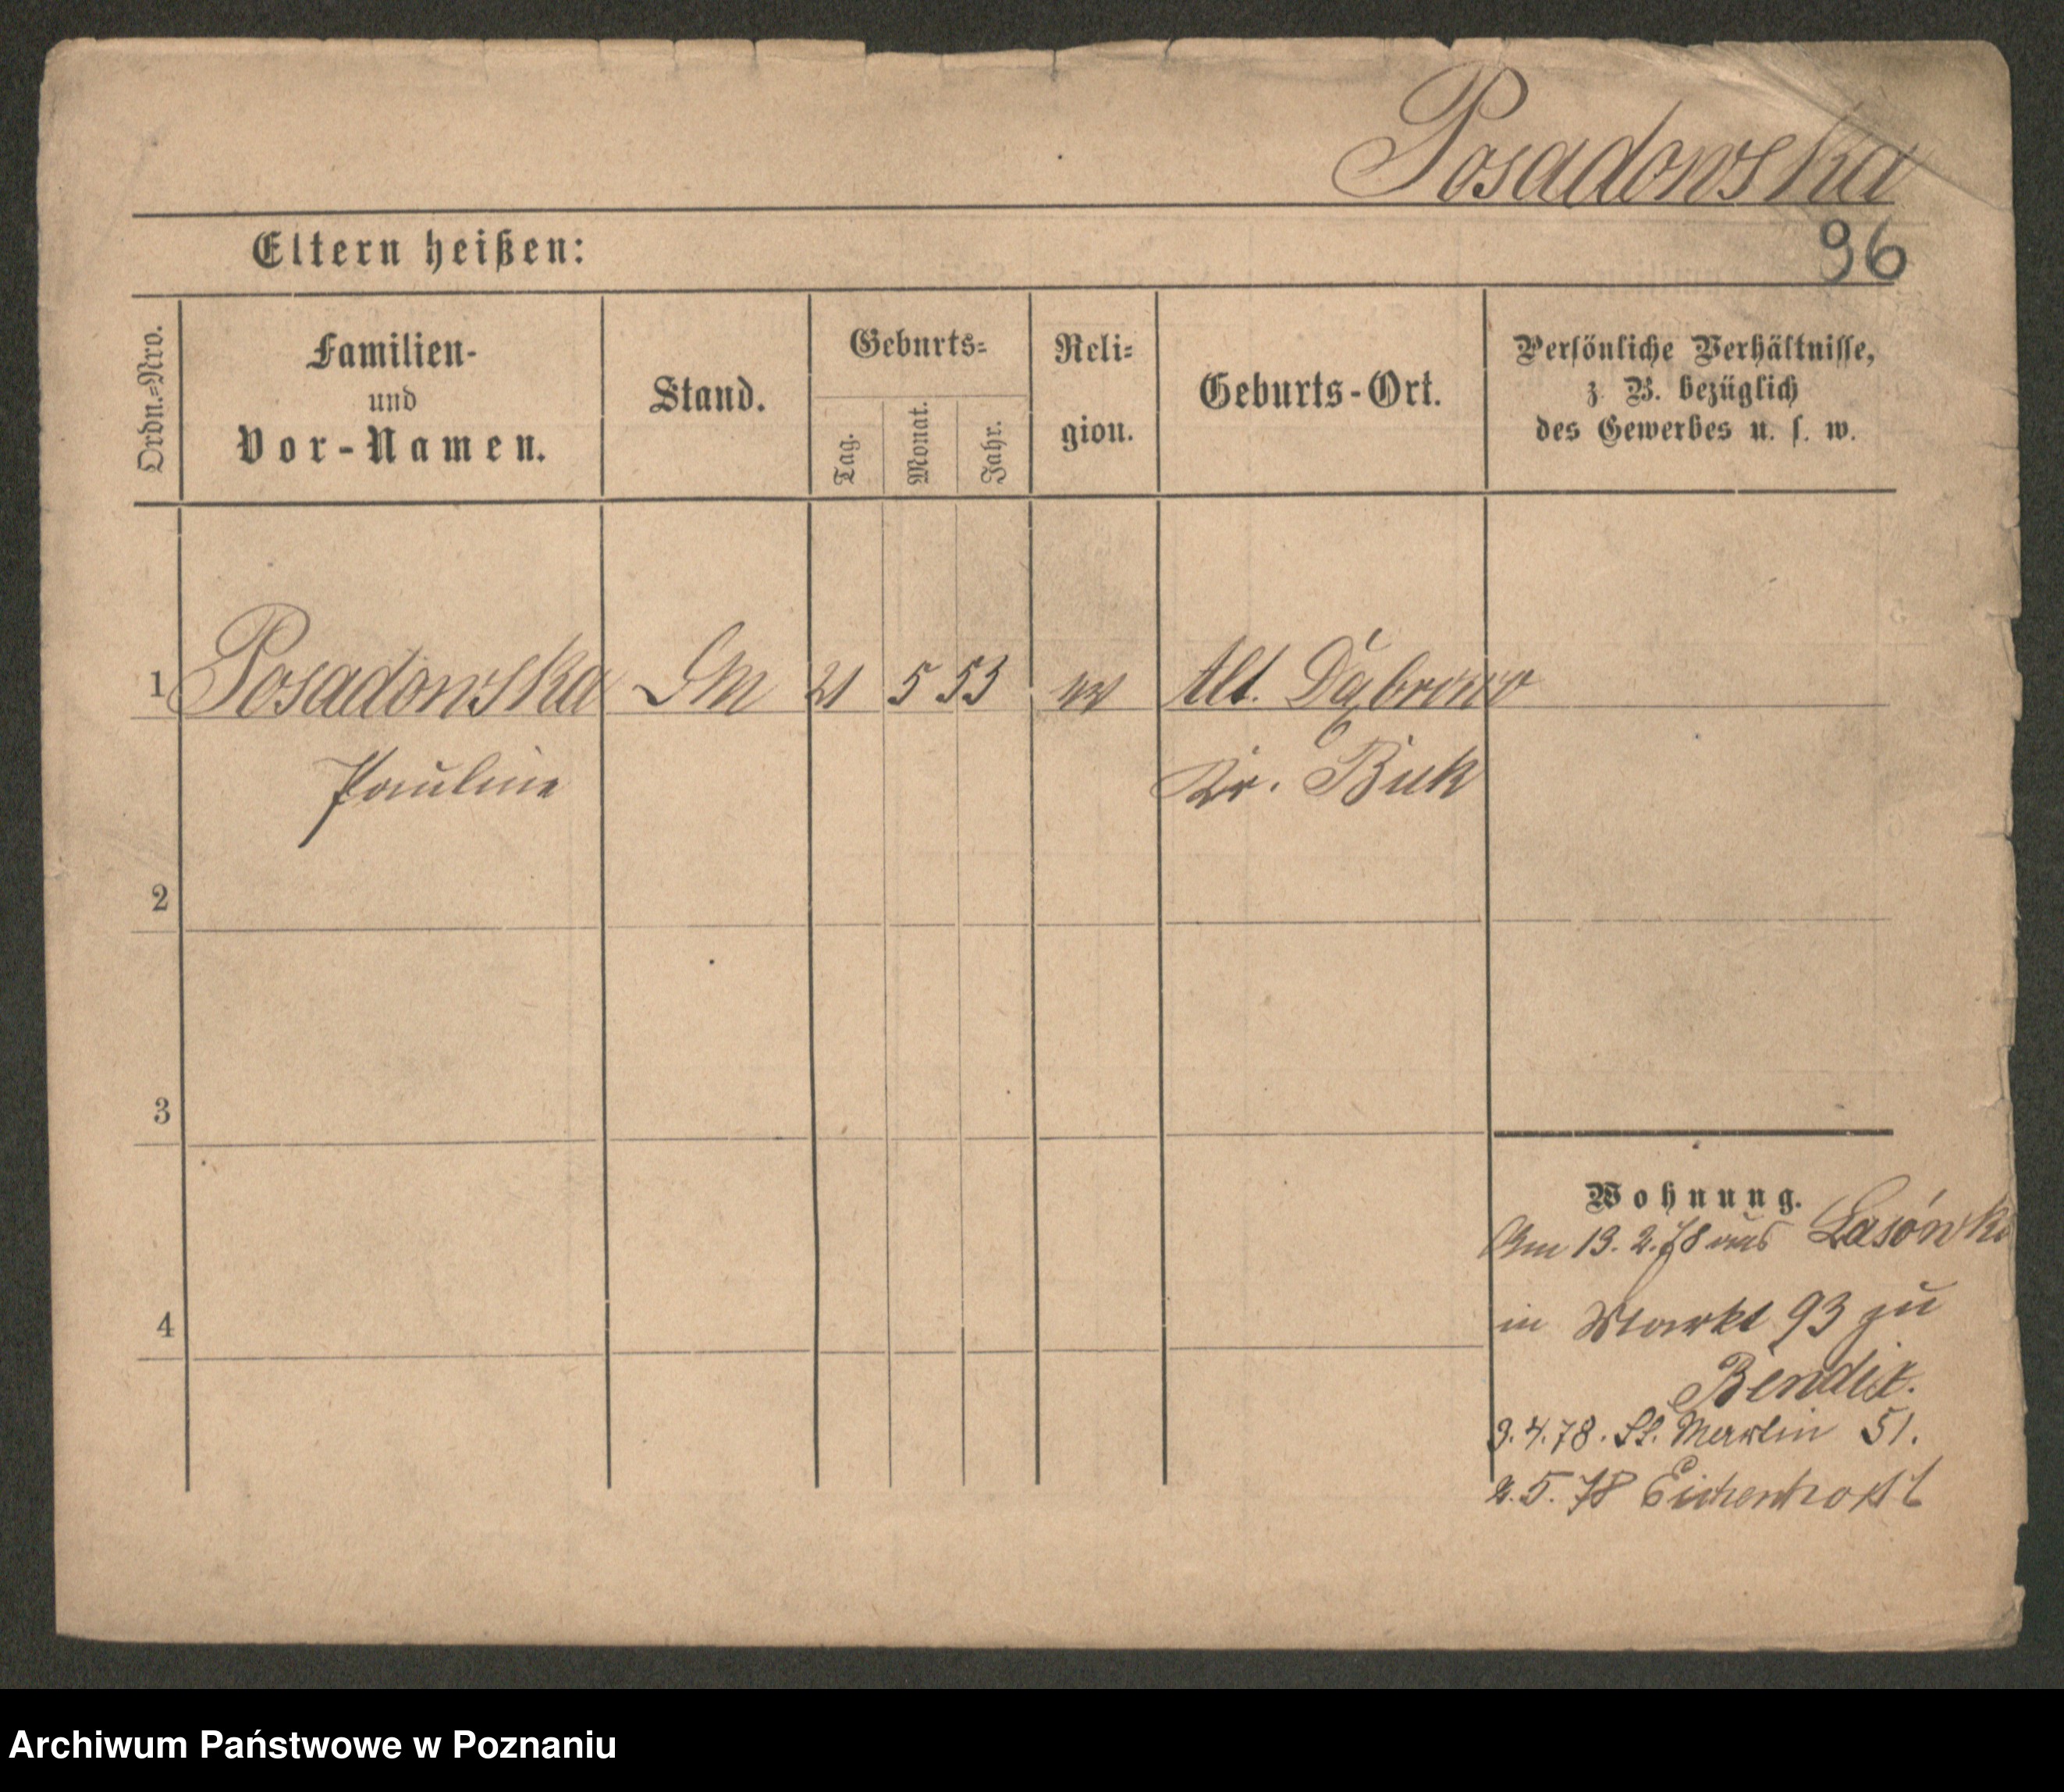 Posadowska
Eltern heißen:
96
Ordn.=Nro.
Familien-
und
Vor-Namen.
Stand.
Geburts=
Tag.
Monat.
Jahr.
Reli=
gion.
Geburts-Ort.
Persönliche Verhältnisse,
z. B. bezüglich
des Gewerbes u. s. w.
1 Posadowska 21 5 53 Alt. Dąbrowo
Pauline Kr. Buk
2
3
4
Wohnung.
Am 13. 2. 78 aus Lasówki
in Markt 93 zu
Bendix.
3. 4. 78. St. Martin 51.
2. 5. 78 Eichenhorst
Archiwum Państwowe w Poznaniu